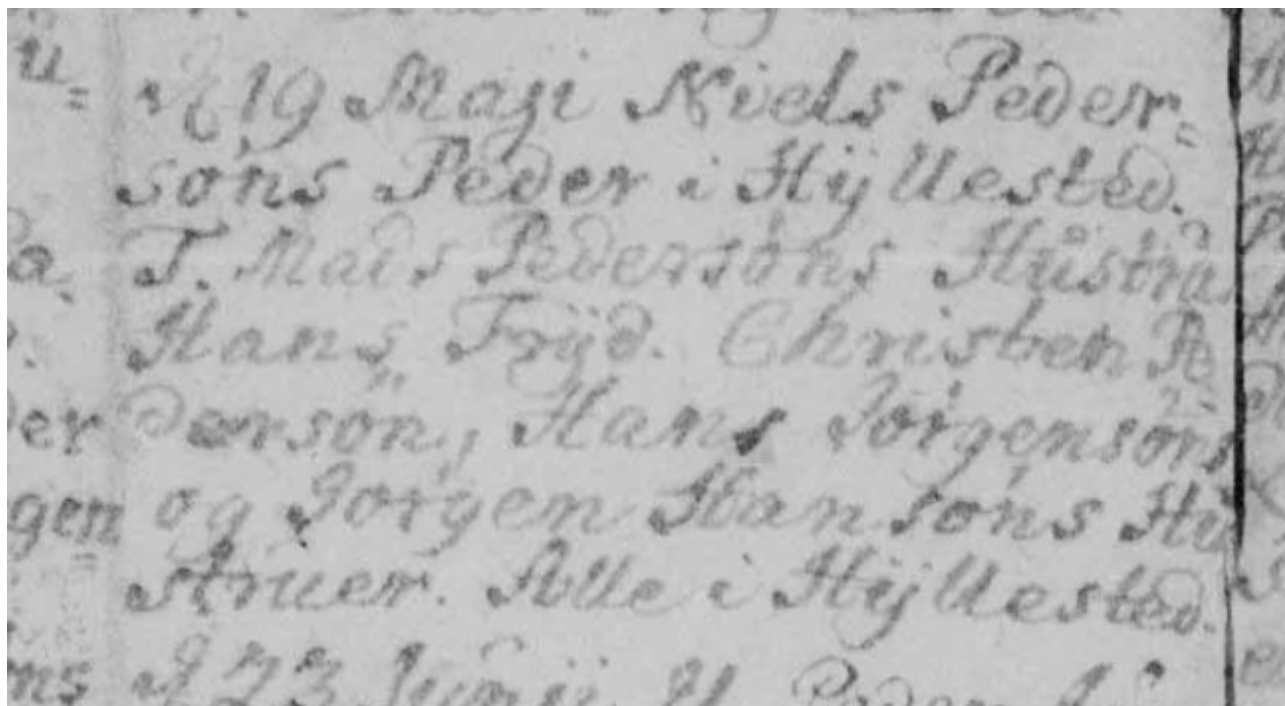 d 19 Maji Niels Peder=
søns Peder i Hÿllested.
T. Mads Pedersøns Hüstrü
Hans Frÿd. Christen Pe
dersøn, Hans Jörgensøns
og Jörgen Hansøns Hu
struer. Alle i Hÿllested.
d 23 Junii